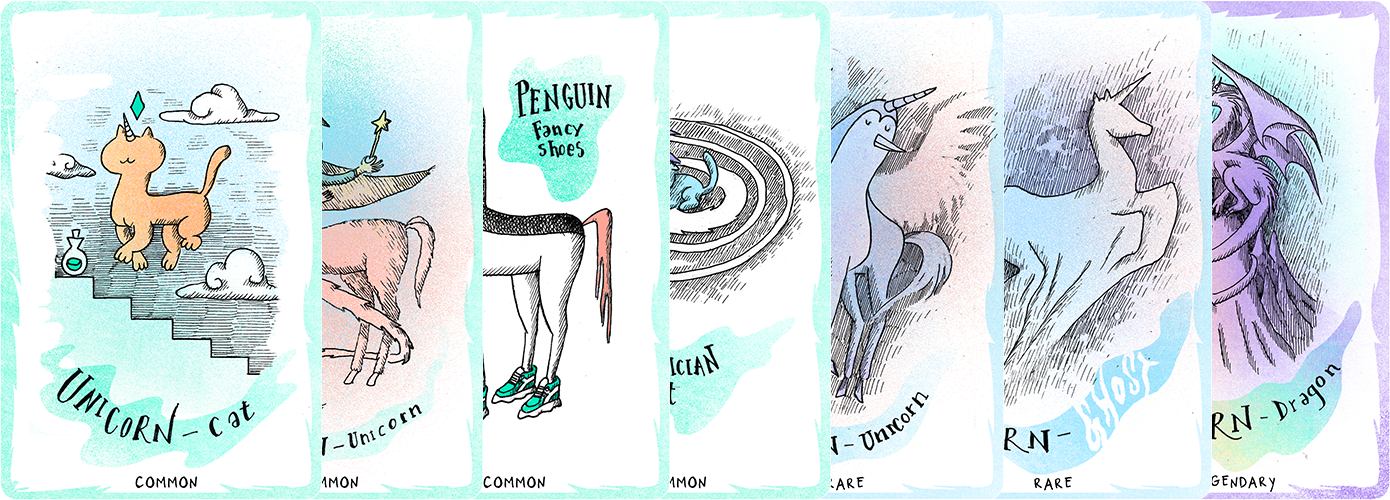 UNICORN - cat
COMMON
N - Unicorn
MMON
PENGUIN
Fancy
shoes
COMMON
ICIAN
t
MMON
N - Unicorn
RARE
RN - GHOST
RARE
RN - Dragon
GENDARY